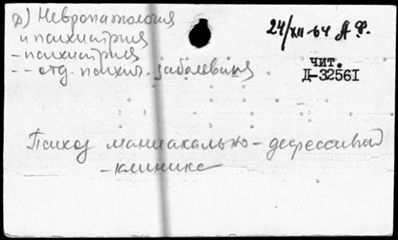 р) Невропатология
и психиатрия
- психиатрия
-- отд. психич. заболевания
24/XII-64 А Ф.
чит.
Д-32561
Психоз маниакально-депрессивный
-клиника